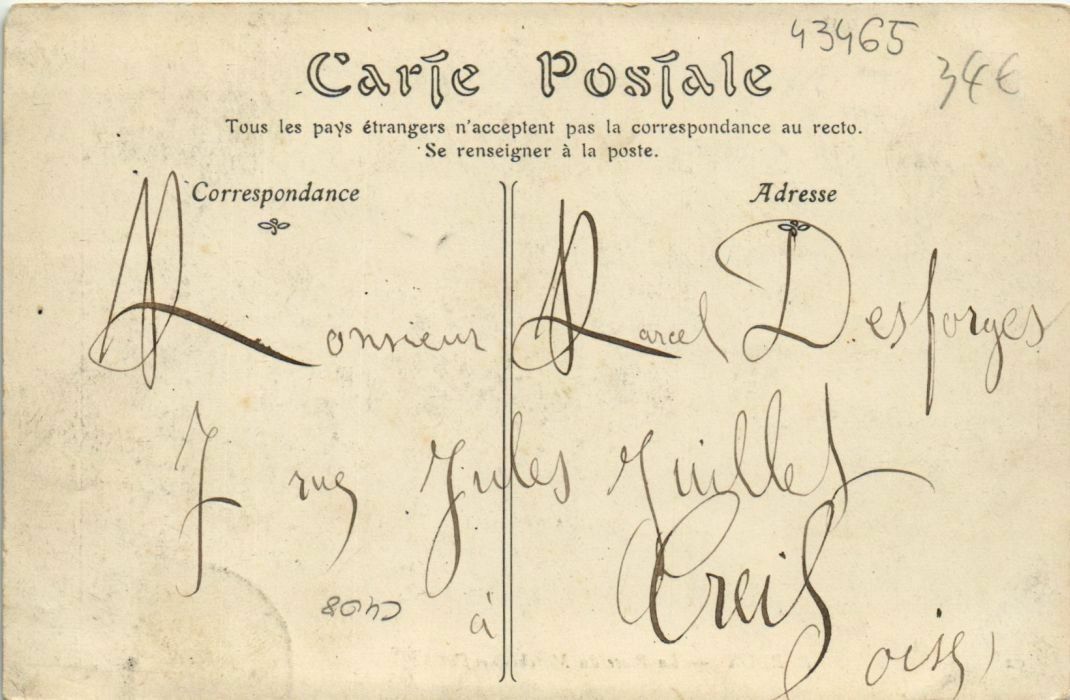 43465
34€
Carte Postale
Tous les pays étrangers n'acceptent pas la correspondance au recto.
Se renseigner à la poste.
Correspondance
Adresse
Monsieur Marcel Desforges
7 rue Jules Juillet
à Creil
(oise)